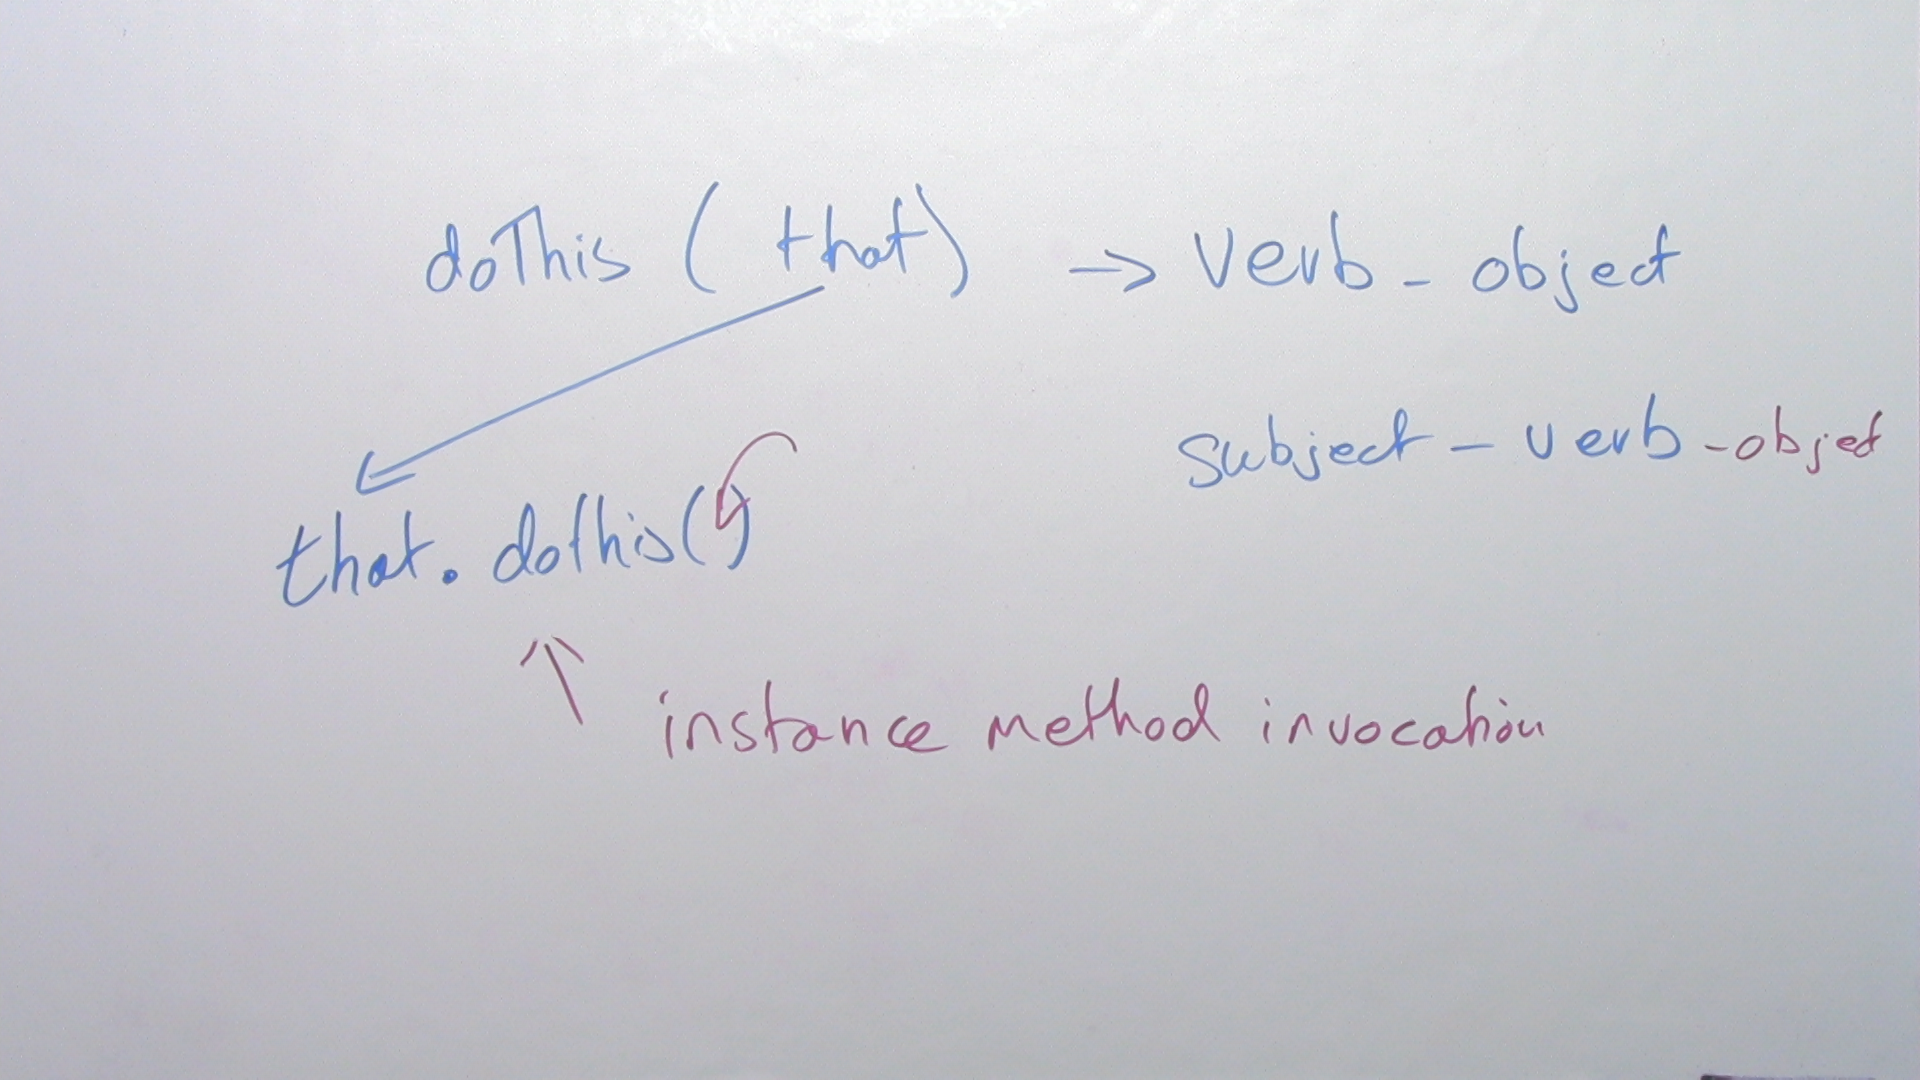 doThis ( that) -> verb - object
subject - verb - objet
that. dothis()
instance method invocation